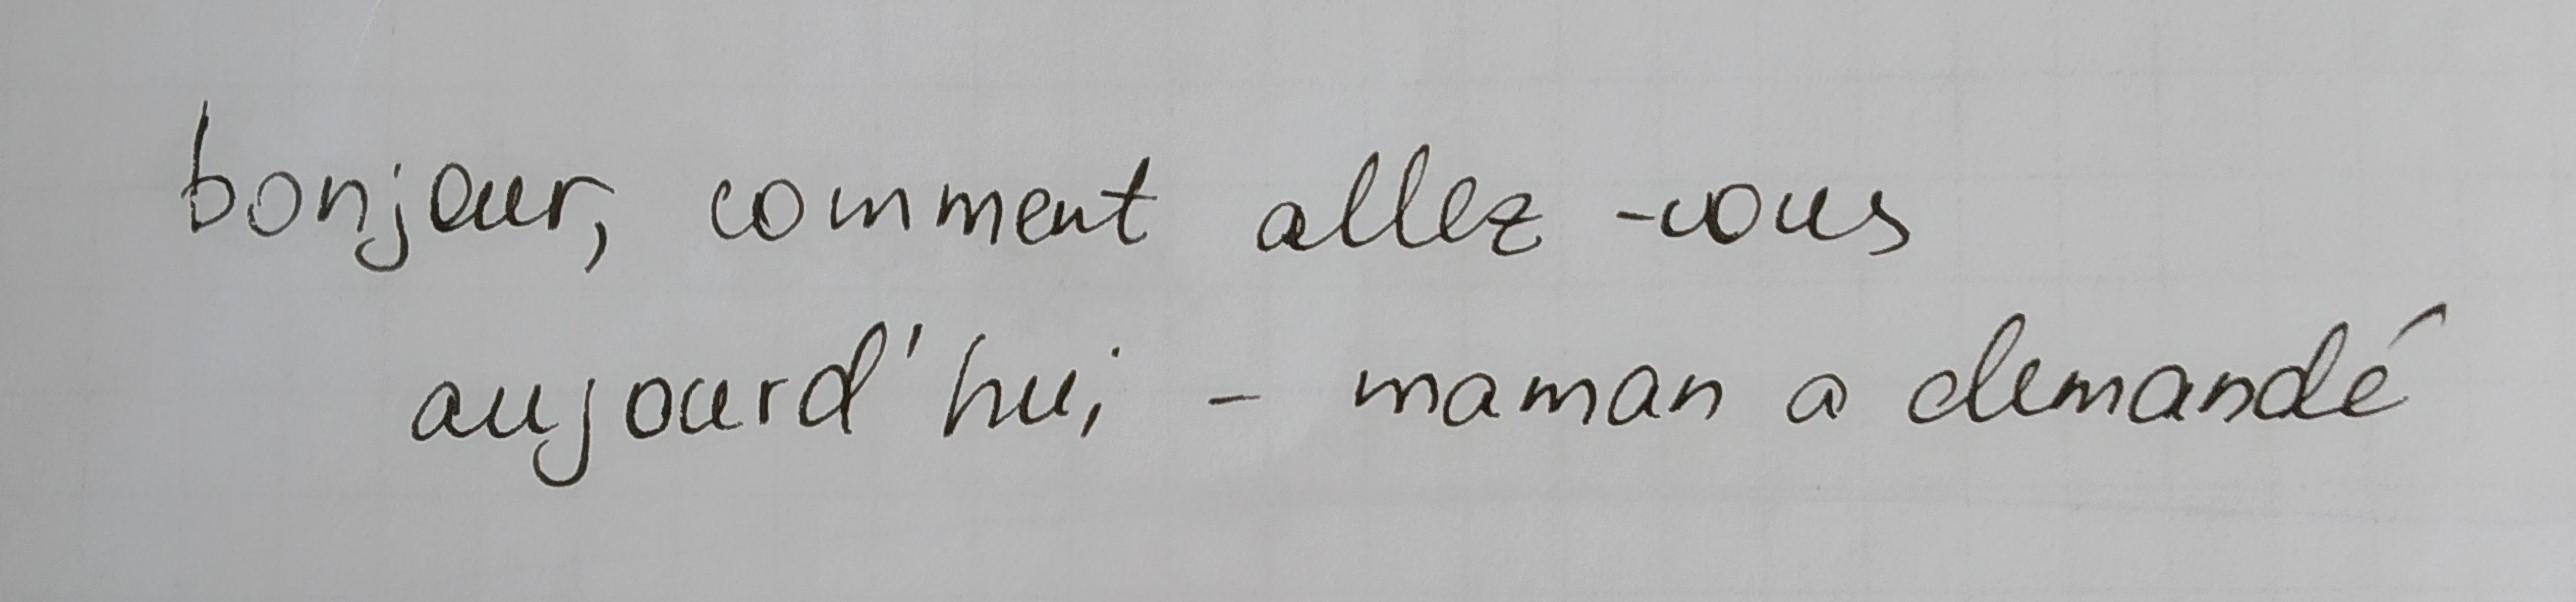 bonjour, comment allez-vous
aujourd'hui - maman a demandé